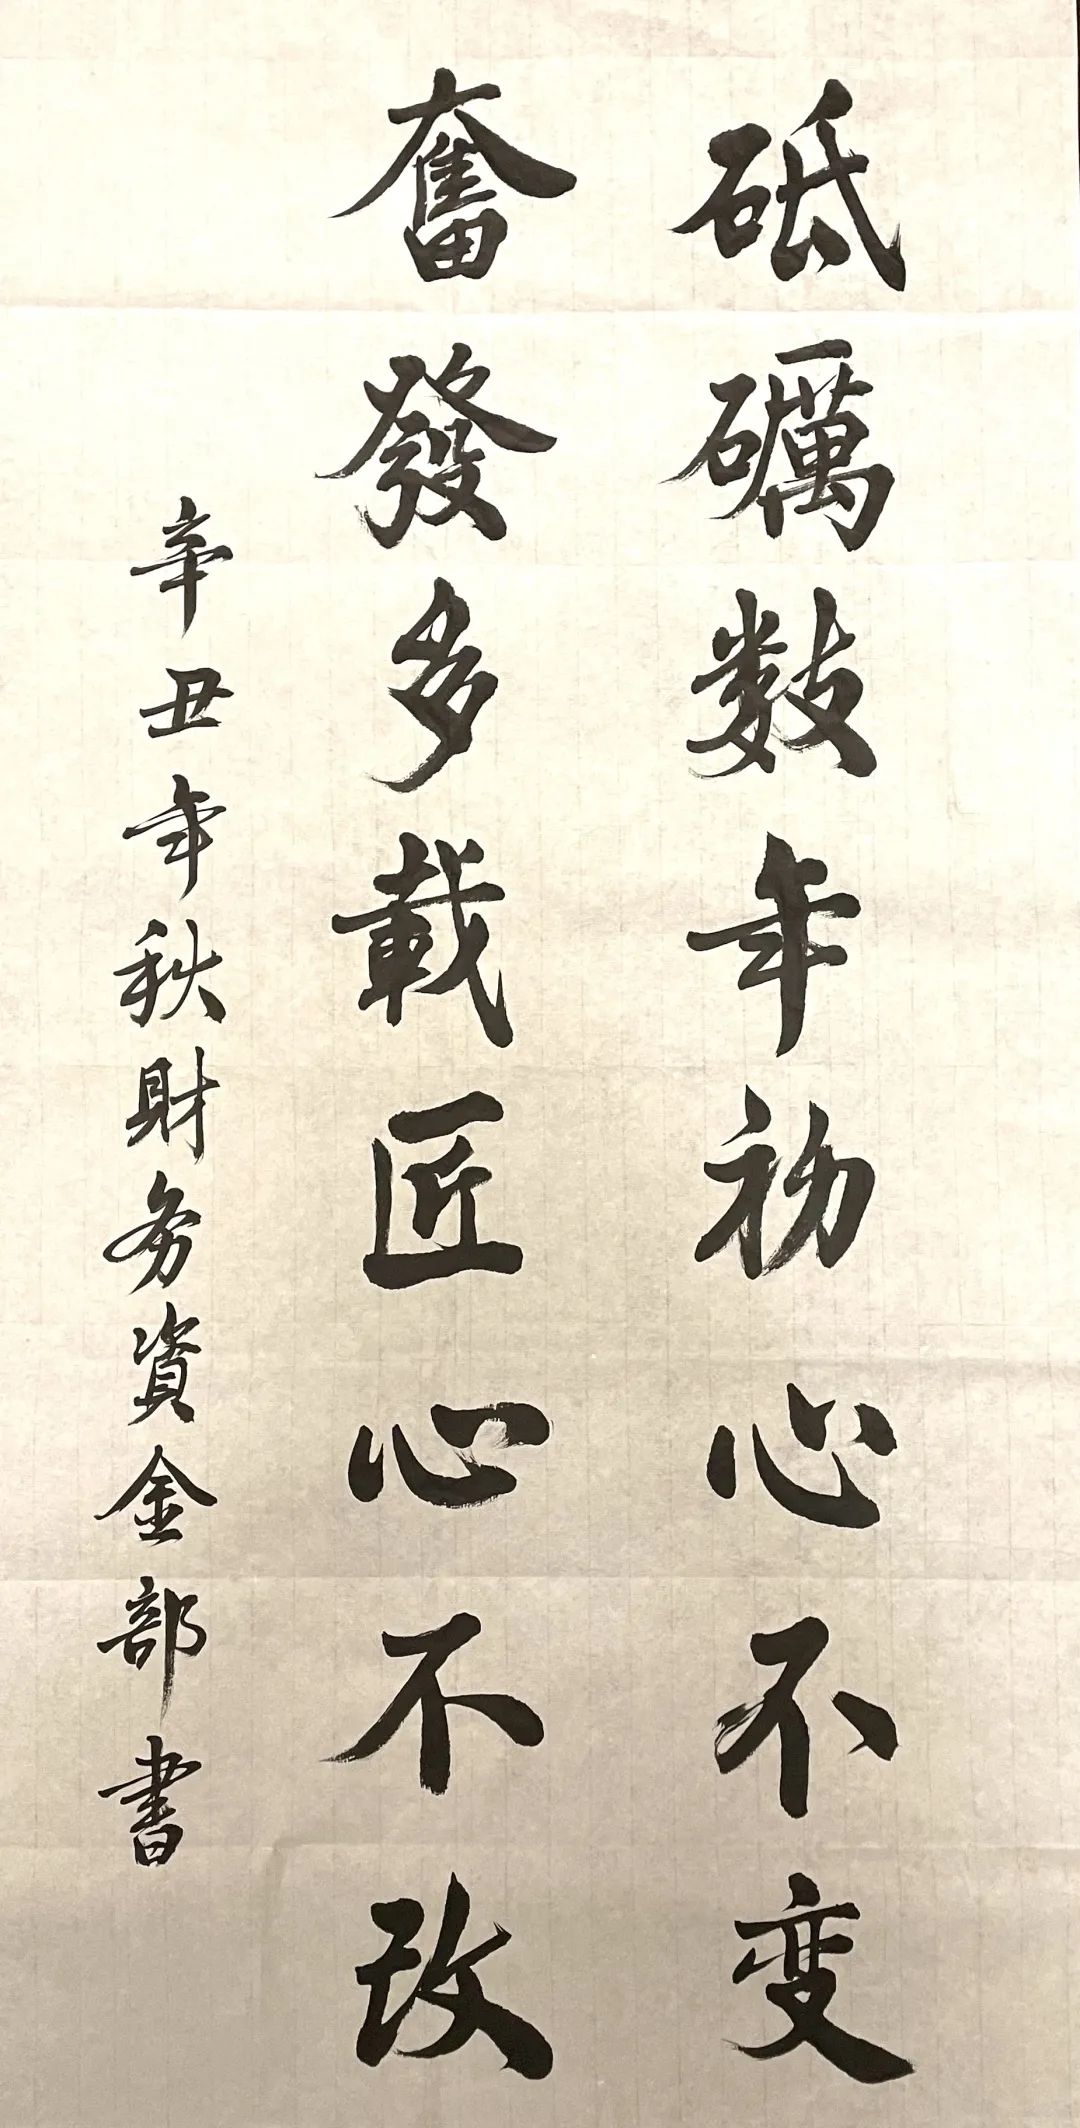 砥礪数年初心不变
奮發多載匠心不改
辛丑年秋財务資金部書